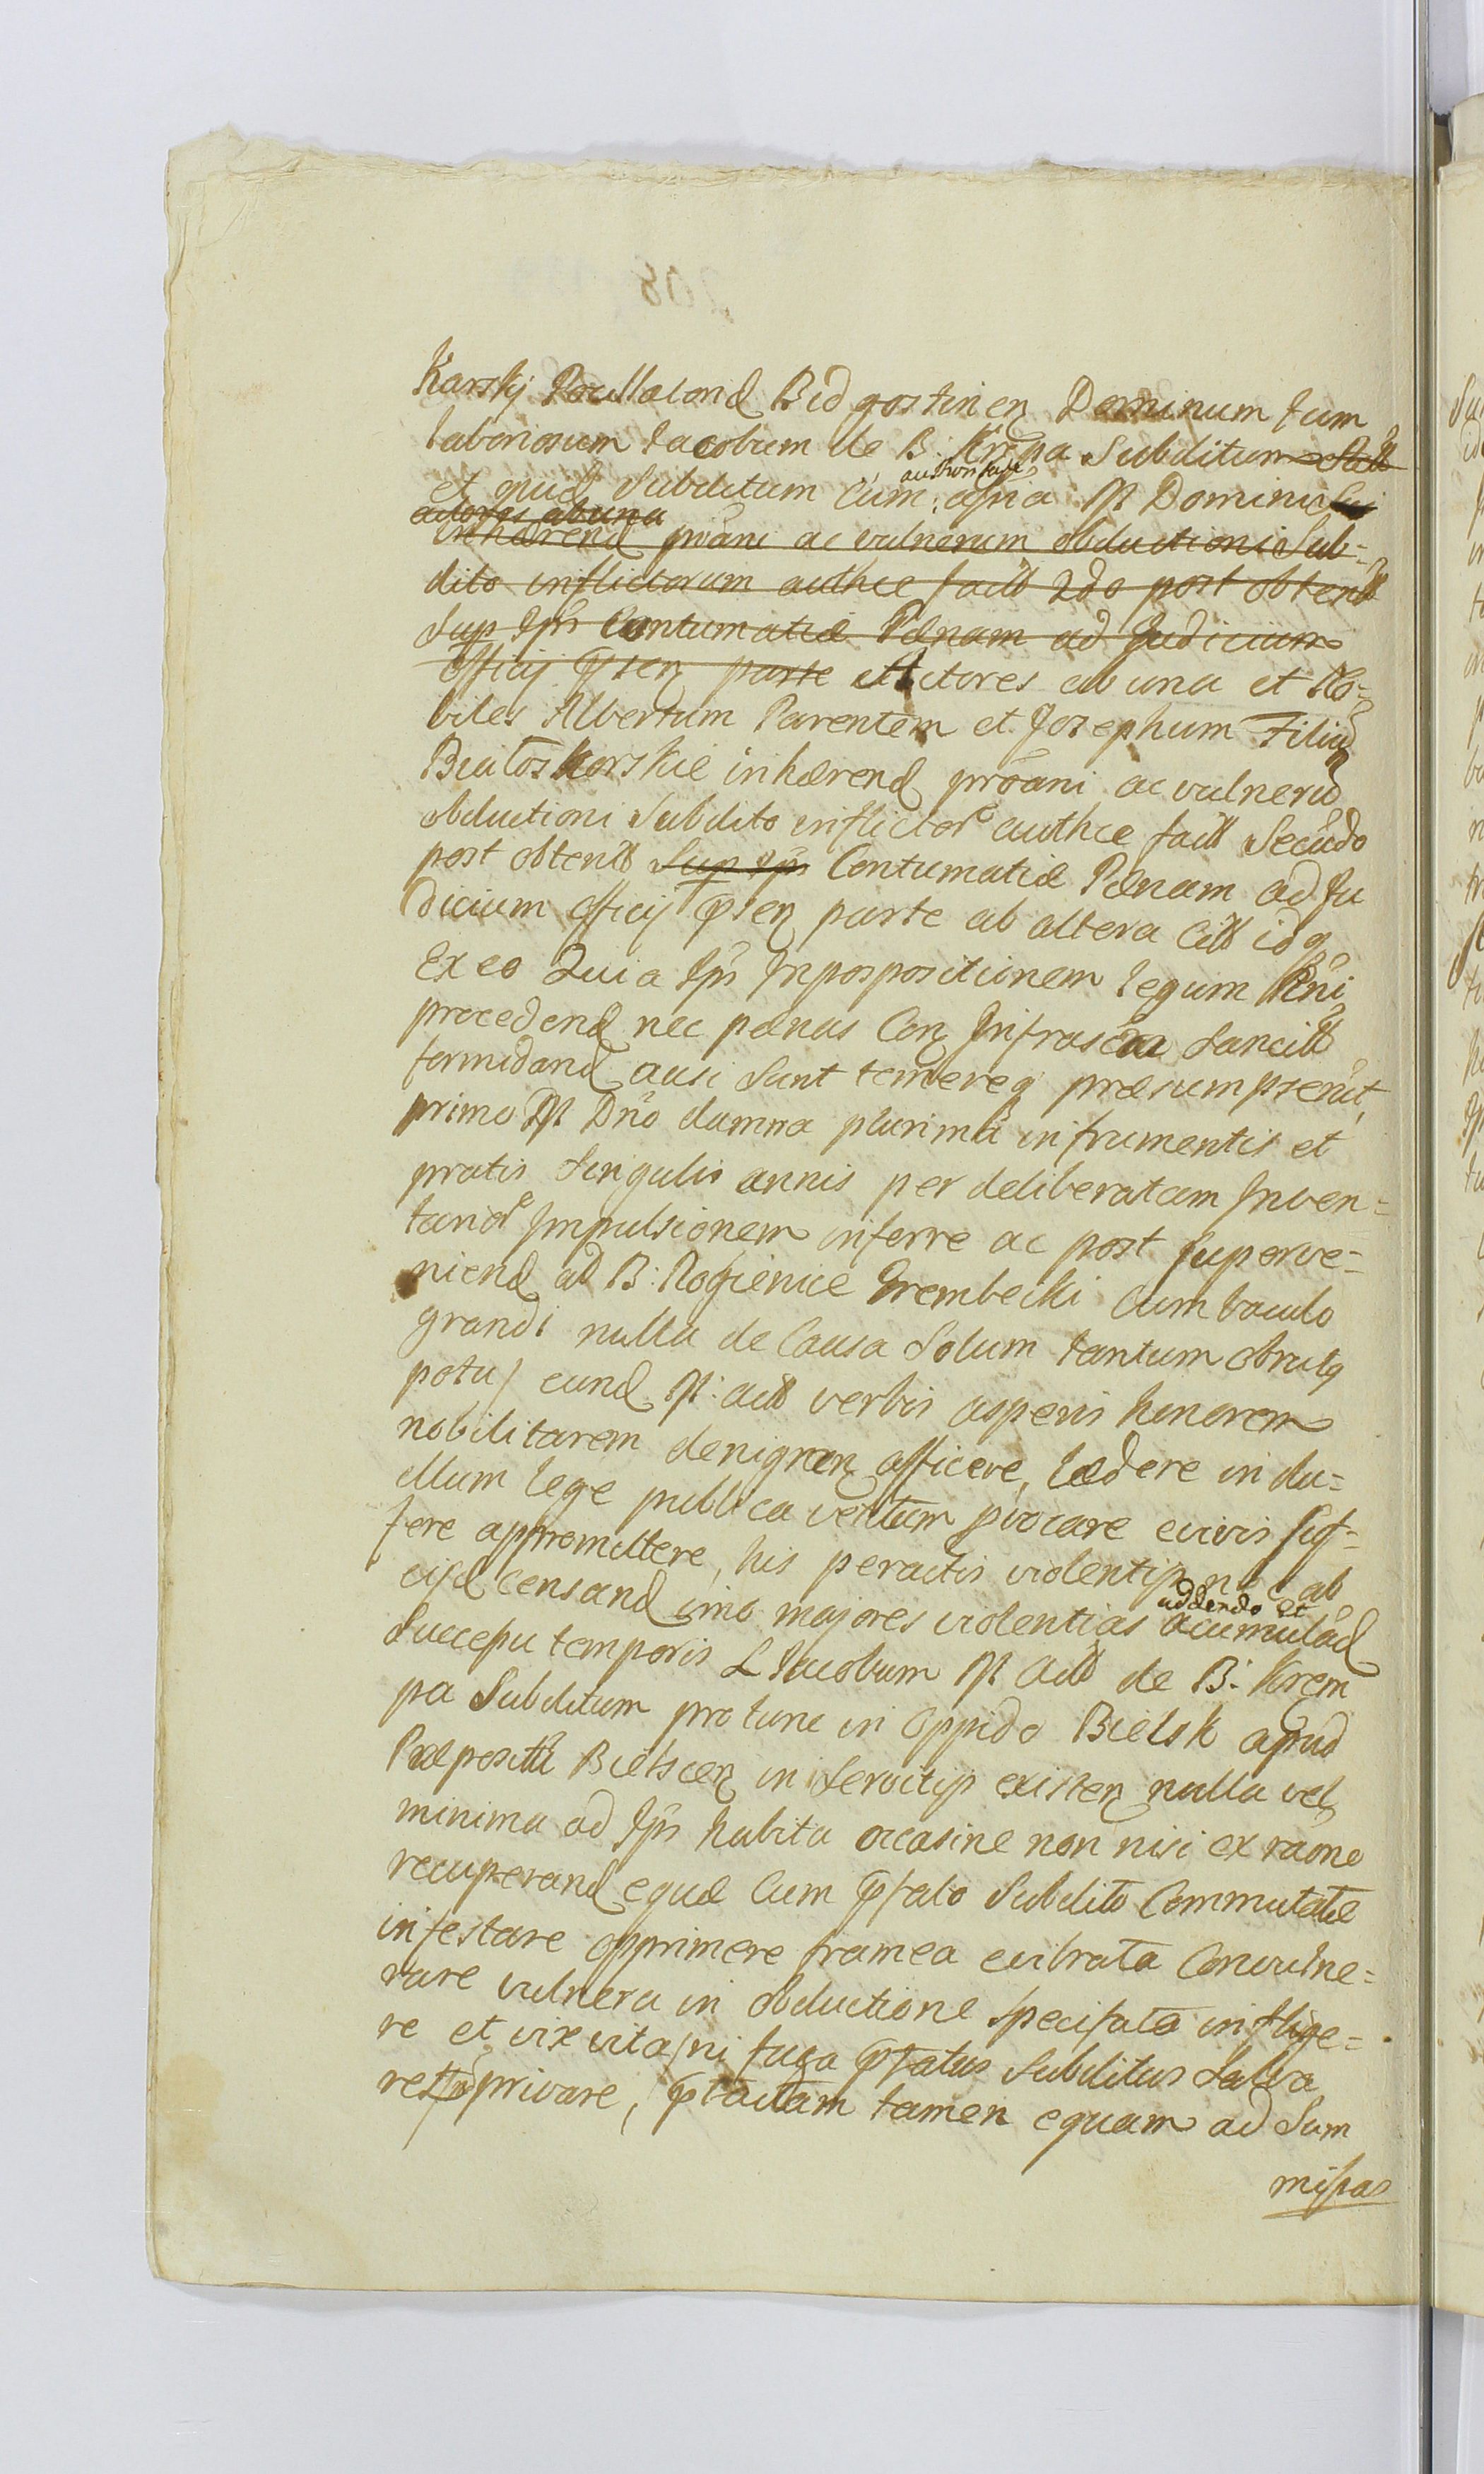 Karskj Pocillatorid Bid gostinen Dominum tum
laboriosum Jacobum de B: Krępa Subditum
et quid Subditum Cum authoritate apria M Dominu
actores ab una
inhærend proãni ac vulnerum obductioni Sub=
dito inflictorum authce fact 2do post obtent
Sup Ips Contumatiæ Pænam ad Judicium
Officij psen parte Actores ab una et No=
biles Albertum Parentem et Josephum Filiu
Białoskorskie inhærend proãni ac vulneru
obductioni Subdito inflictor authce fact Secudo
post obtent Sup Ips Contumatiæ Pænam ad Ju
dicium Officij psen parte ab altera Citt idq
Ex eo Quia Ips Inpospositionem legum Rni
procedend nec pænas Con Infrascta Sancitt
formidand ausi Sunt temereq præsumpserut,
primo M Dño damna plurima in frumentis et
pratis Singulis annis per deliberatam Inven=
tand Impulsionem inferre ac post Superve=
niend ad B: Rogienice Grembecki Cum baculo
grandi nulla de Causa Solum tantum obrutq
potu/ eund M: act verbis asperis honorem
nobilitarem denigran afficere, lædere in du=
ellum lege publica vetitum provocare evivis suf=
fere appromittere, his peractis violentijs nec ab
eisd Censand imo majores violentias addendo et acumulad
Successu temporis L Jacobum M Act de B: Krem
pa Subditum pro tunc in Oppido Bielsk apud
Præposita Bielscen in Servitijs existen nulla vel
minima ad Ips habita occasine non nisi ex raone
recuperand equæ Cum pfato Subdito Commutatæ
infestare opprimere framea evibrata Convulne=
rare vulnera in obductione Specifata inflige=
re et vix vita/ni fuga pfatus Subditus Salva
retur privare, ptactam tamen equam ad Sum
missas